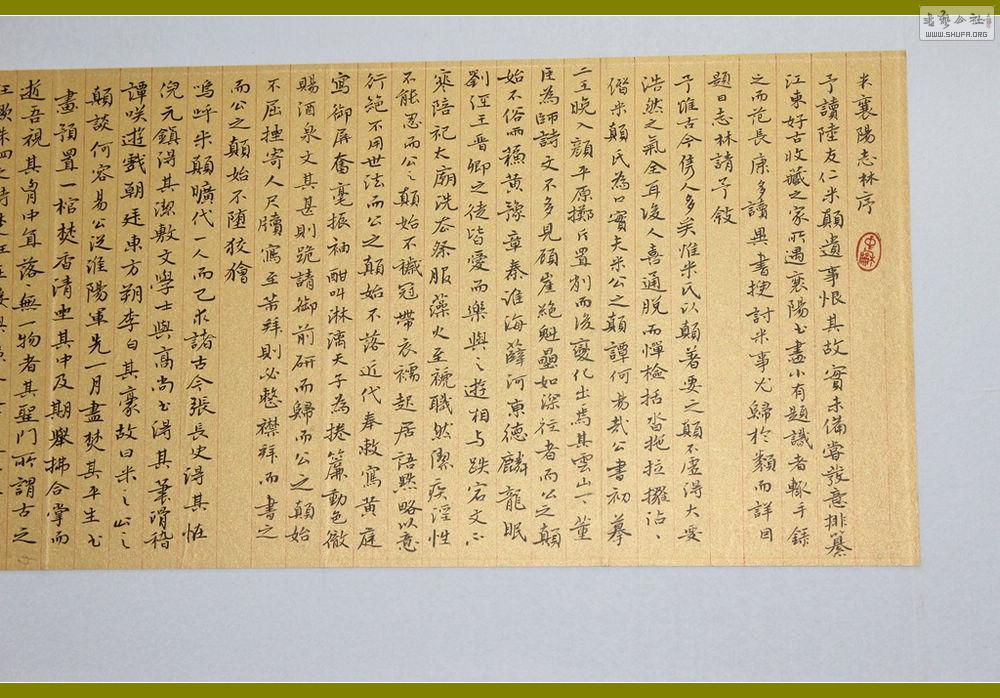 米襄阳志林序
予讀陸友仁米顛遺事恨其故實未備嘗發意排纂
江東好古收藏之家所遇襄陽書畫小有題識者輙手錄
之而范長康多讀異書搜討米事尤歸於類而詳因
題曰志林請予敍
予惟古今雋人多矣惟米氏以顛著要之顛不虛得大要
浩然之氣全耳後人喜通脫而憚檢括沓拖拉攞沾沾
借米顛氏為口實夫米公之顛譚何易哉公書初摹
二王晚入顏平原擲斤置削而後變化出焉其雲山一一董
巨為師詩文不多見顧崖絕魁壘如深往者而公之顛
始不俗而福黃豫章秦淮海薛河東德麟龍眠
劉涇王晉卿之徒皆愛而樂與之遊相与跌宕文心
不能忍而公之顛始不穢冠帶衣襦起居語默略以意
寒陪祀太廟洗去祭服藻火至褫職然潔疾淫性
行絕不用世法而公之顛始不落近代奉敕寫黃庭
寫御屏奮毫振袖酣叫淋漓天子為捲簾動色徹
賜酒泉文其甚則跪請御前研而歸而公之顛始
不屈挫寄人尺牘寫至芾拜則必整襟拜而書之
而公之顛始不堕狡獪
嗚呼米顛曠代一人而已求諸古今張長史得其怪
倪元鎮得其潔敷文學士與高尚書得其筆滑稽
譚咲遊戲朝廷東方朔李白其豪故曰米之山之
顛談何容易公沒淮陽軍先一月盡焚其平生书
畫預置一棺焚香清坐其中及期舉拂合掌而
逝吾視其胷中直落落無一物者其聖門所謂古之
狂歟洙泗之時
SHUFA.ORG
WWW.SHUFA.ORG